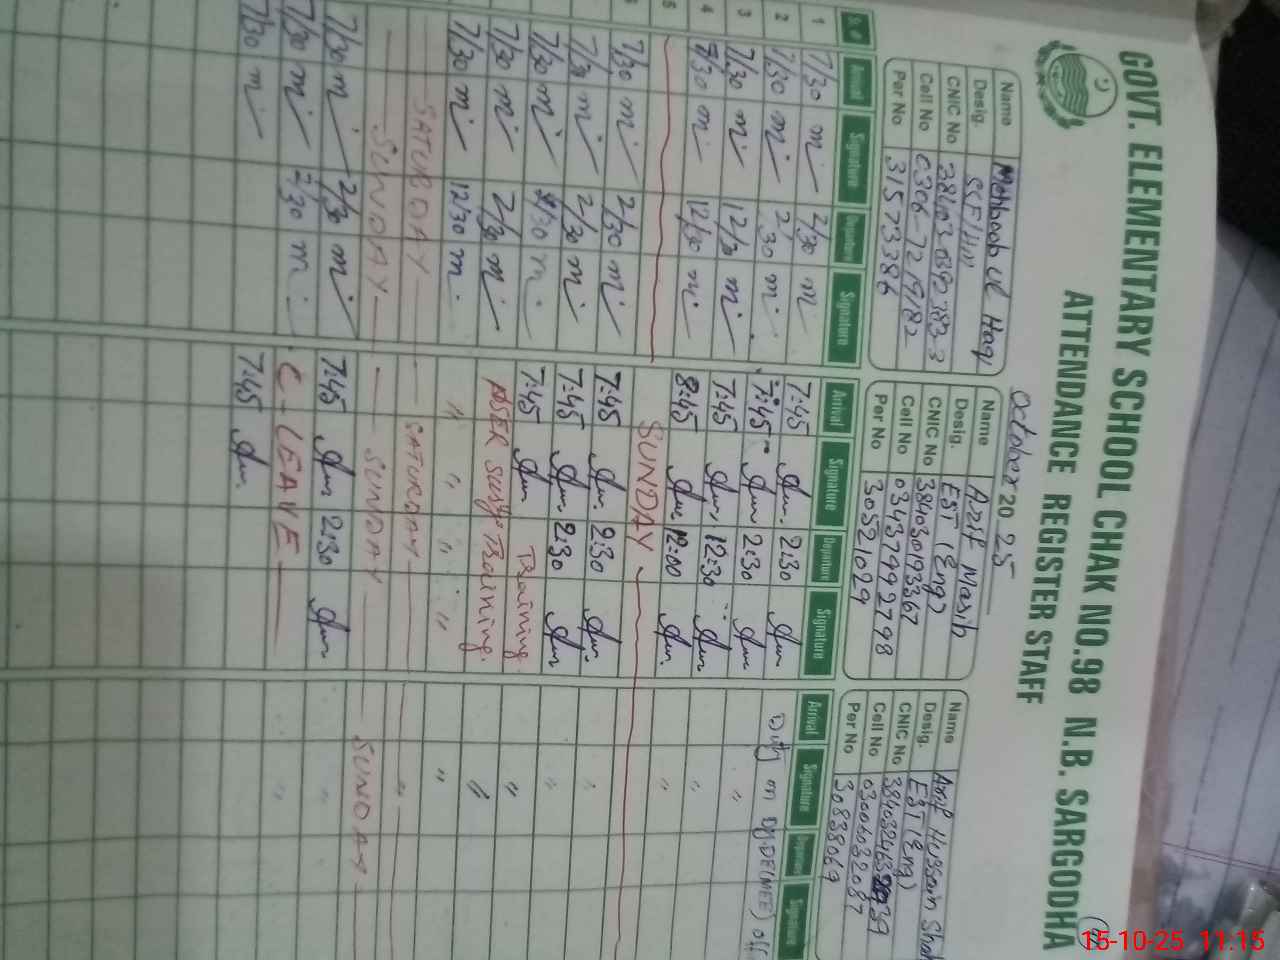 GOVT. ELEMENTARY SCHOOL CHAK NO.98 N.B. SARGODHA
ATTENDANCE REGISTER STAFF
October 20 25
Name Mehboob Ul Haq
Desig.
CNIC No
Cell No 0306-7219182
Per No 31573386
Name Asif Masih
Desig. EST (Eng)
CNIC No 384030193367
Cell No 03437992798
Per No 30521029
Name Hussain Shah
Desig. EST (Eng)
CNIC No
Cell No 03006032087
Per No 30838069
Sr. # Arrival Signature Departure Signature Arrival Signature Departure Signature Arrival Signature Departure Signature
1 7/30 2/30 7:45 2:30 Duty on Dy.DE(MEE) off
2 7/30 2/30 7:45 2:30
3 7/30 12/30 7:45 12:30 "
4 7/30 12/30 8:45 12:00 "
5 SUNDAY "
7/30 2/30 7:45 2:30 "
7/30 2/30 7:45 2:30 "
7/30 2/30 7:45 Training "
7/30 2/30 ASER Training. "
7/30 12/30 " " " " "
SATURDAY SATURDAY "
SUNDAY SUNDAY SUNDAY
7/30 2/30 7:45 2:30 "
7/30 2/30 C-LEAVE "
7/30 7:45
15-10-25 11:15